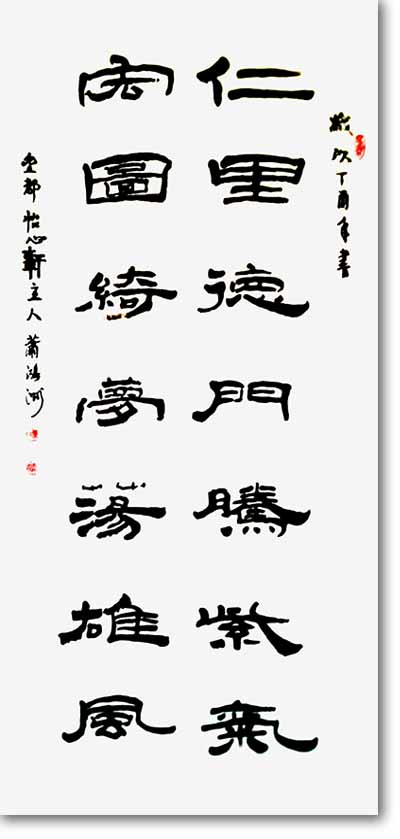 歲次丁酉年書
仁里德門騰紫氣
宏圖綺夢蕩雄風
都怡心軒主人蕭鴻洲